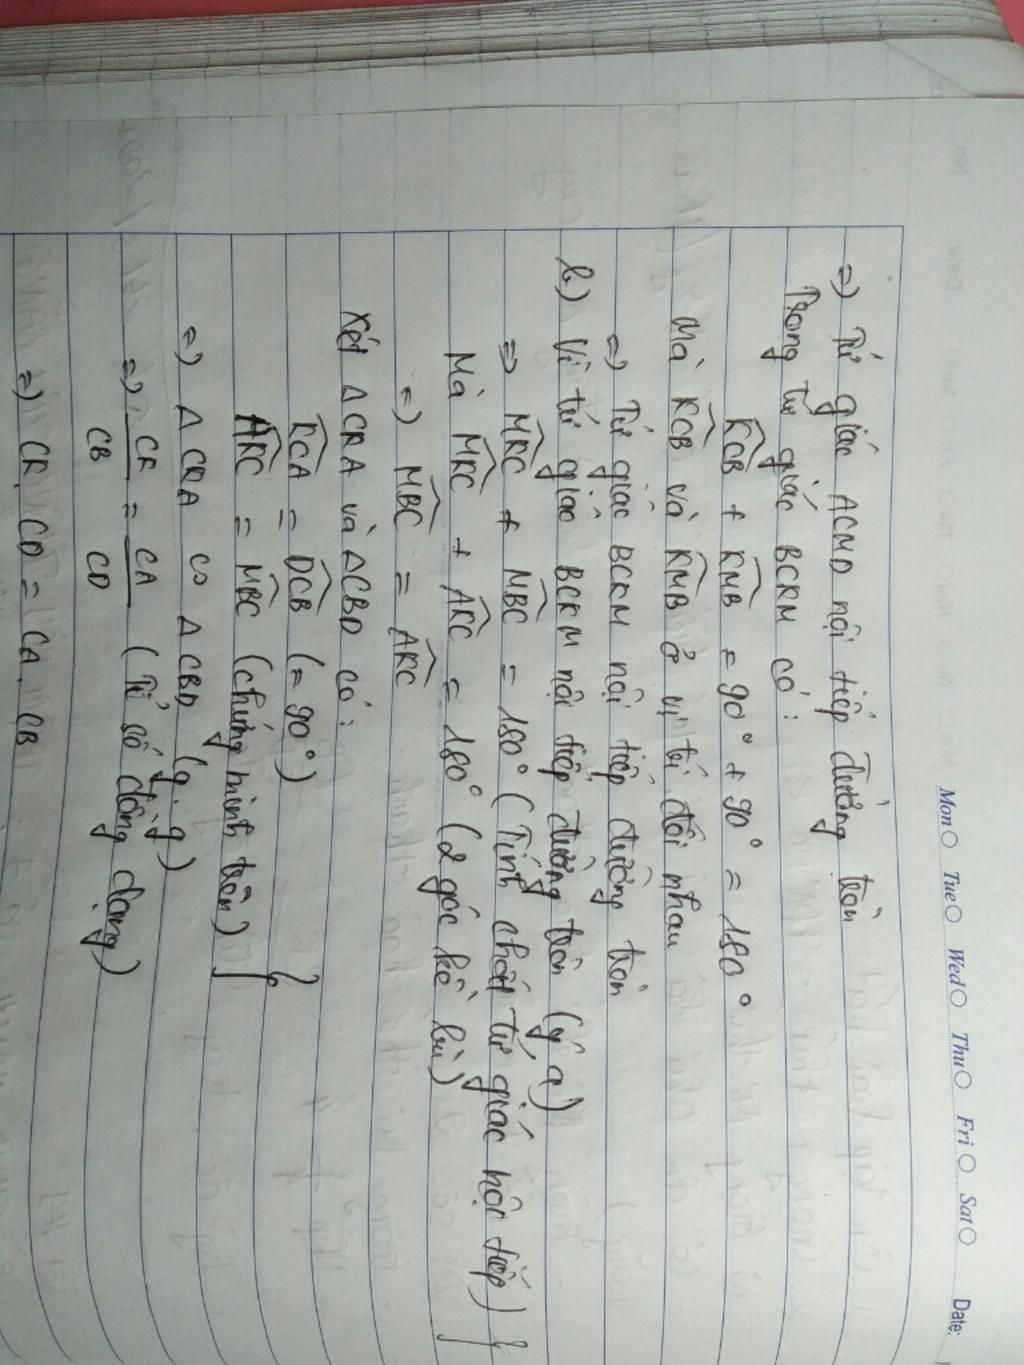 Mon Tue Wed Thu Fri Sat Date:
=) Tứ giác ACMD nội tiếp đường tròn
Trong tứ giác BCKM có:
KCB + KMB = 90° + 90° = 180°
Mà KCB và KMB ở vị trí đối nhau
=) Tứ giác BCKM nội tiếp đường tròn
b) Vì tứ giác BCKM nội tiếp đường tròn (ý a)
=) MKC + MBC = 180° (Tính chất tứ giác nội tiếp)
Mà MKC + AKC = 180° (2 góc kề bù)
=) MBC = AKC
Xét ΔCKA và ΔCBD có:
KCA = DCB (= 90°)
AKC = MBC (chứng minh trên)
=) Δ CKA ∽ Δ CBD (g.g)
=) CK/CB = CA/CD (Tỉ số đồng dạng)
=) CK. CD = CA. CB